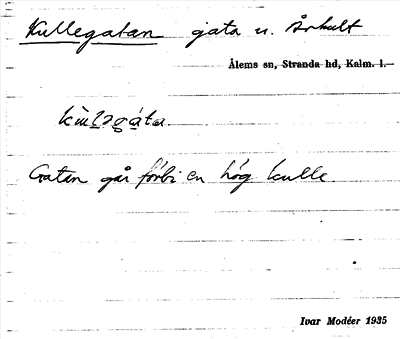 Kullegatan gata u. Århult
Ålems sn, Stranda hd, Kalm. l.
Gatan går förbi en hög kulle
Ivar Modéer 1935